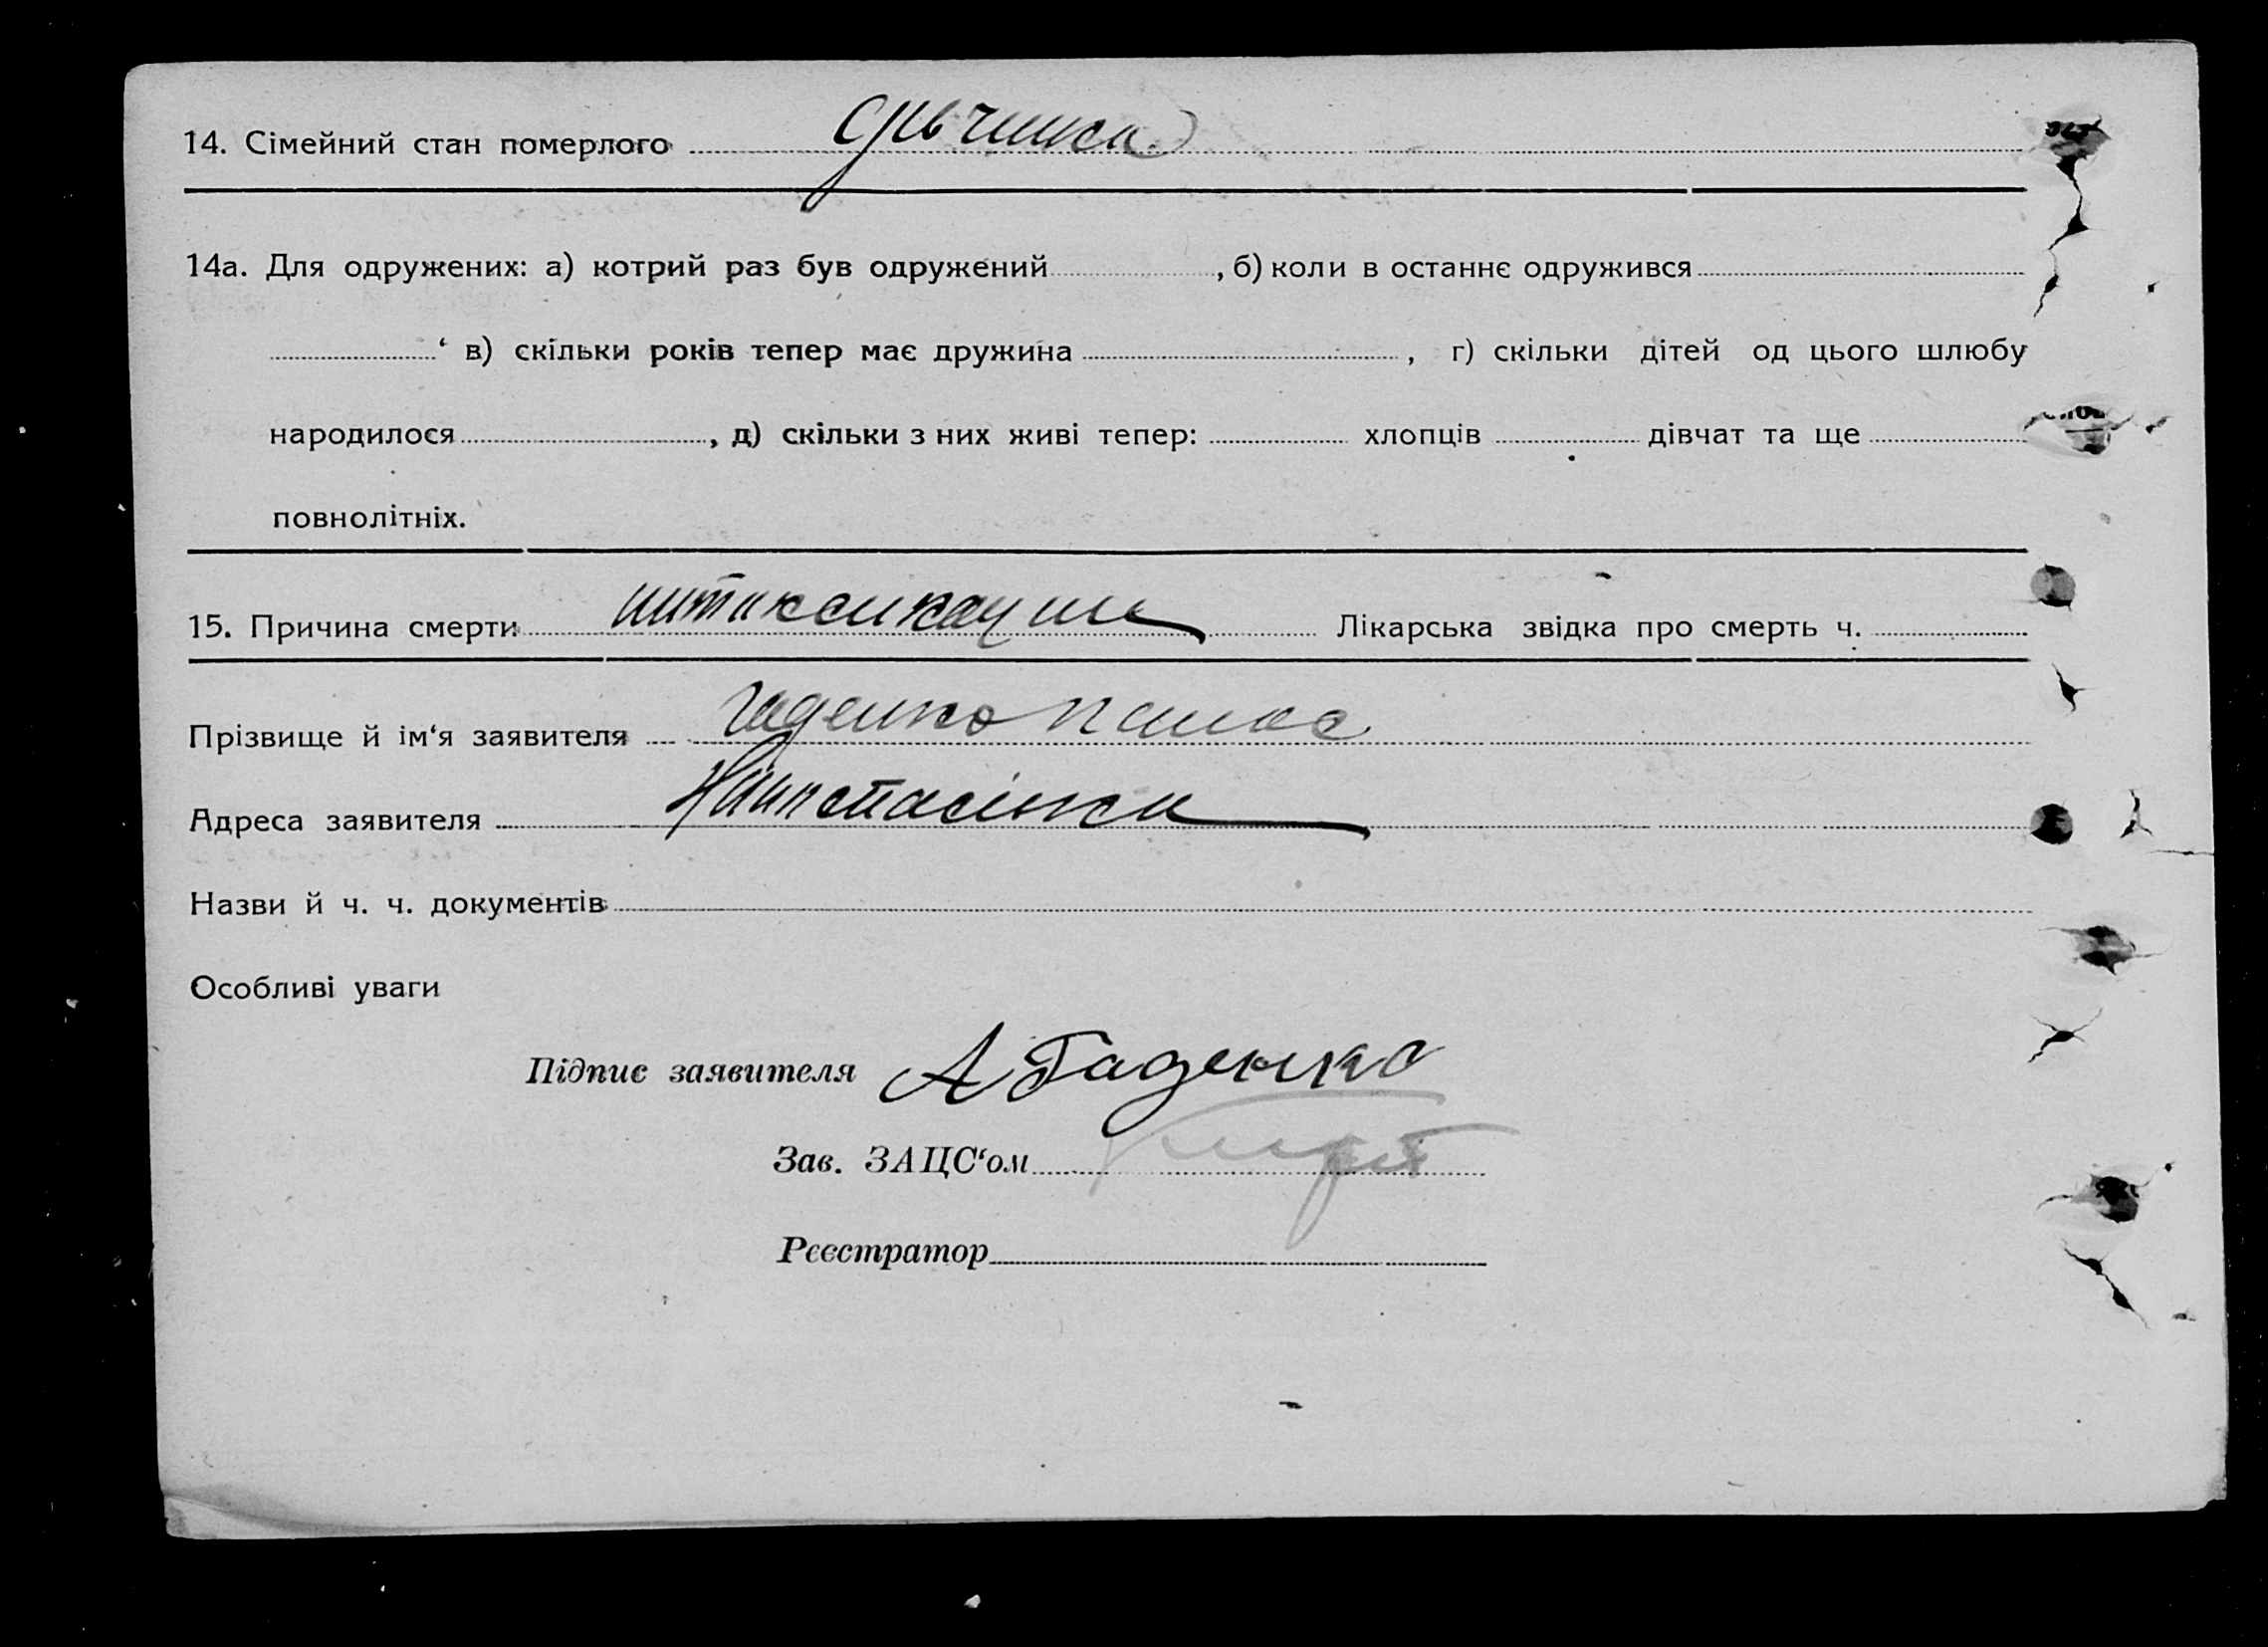 14. Сімейний стан померлого дівчинка
14а. Для одружених: а) котрий раз був одружений , б) коли в останнє одружився
‘ в) скільки років тепер має дружина , г) скільки дітей од цього шлюбу
народилося , д) скільки з них живі тепер: хлопців дівчат та ще
повнолітніх.
15. Причина смерти интоксикация Лікарська звідка про смерть ч.
Прізвище й ім‘я заявителя Гаденко
Адреса заявителя
Назви й ч. ч. документів
Особливі уваги
Підпис заявителя А Гаденко
Зав. ЗАЦС‘ом
Реєстратор